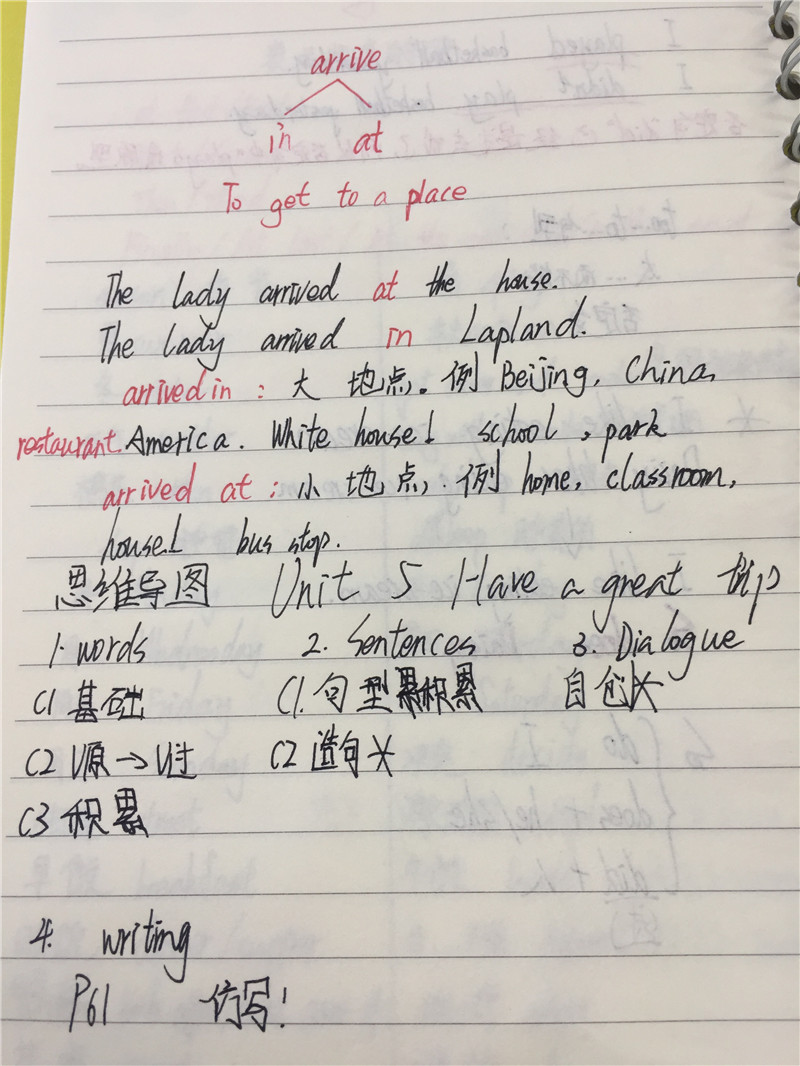 arrive
in at
To get to a place
The lady arrived at the house.
The lady arrived in Lapland.
arrived in : 大 地点。例 Beijing, China,
restaurant. America. White house! school , park
arrived at : 小 地点, 例 home, classroom,
house! bus stop.
思维导图 Unit 5 Have a great trip
1. words 2. Sentences 3. Dialogue
C1 基础 C1. 句型积累 自创☆
C2 V原→V过 C2 造句☆
C3 积累
4. writing
P61 仿写!